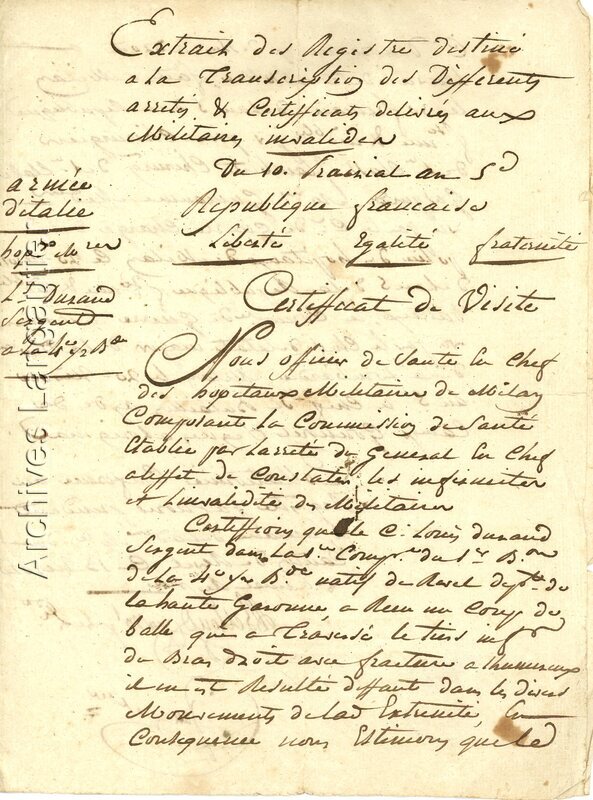 Extrait des Registre destiné
a la Transcription des Differents
arrets & Certificats delivrés aux
Militaires invalides
Du 10. Prairial an 5e
Republique francaise
Liberté Egalité fraternité
armée
d'italie
hopx Mres
Ls Durand
Sergent
a la 4e Be
Certifficat de Visite
Nous officier de Santé En Chef
des hopitaux Militaire de Milan
Composant La Commission de Santé
Etablie par Larreté du General En Chef
aleffet de Constater les infirmites
et Linvalidité des Militaires
Certiffions que le Cn Louis durand
Sergent dans La Compie du 1er Bon
de La 4e Bde natif de Revel dept de
la haute Garonne a Recu un Coup de
balle qui a Traversé le tiers infr
du Bras droit avec fracture a lhumerus
il en est Resulté deffaut dans les divers
Mouvements de lad Extremité, En
Consequence nous Estimons que le d
Archives Langlart